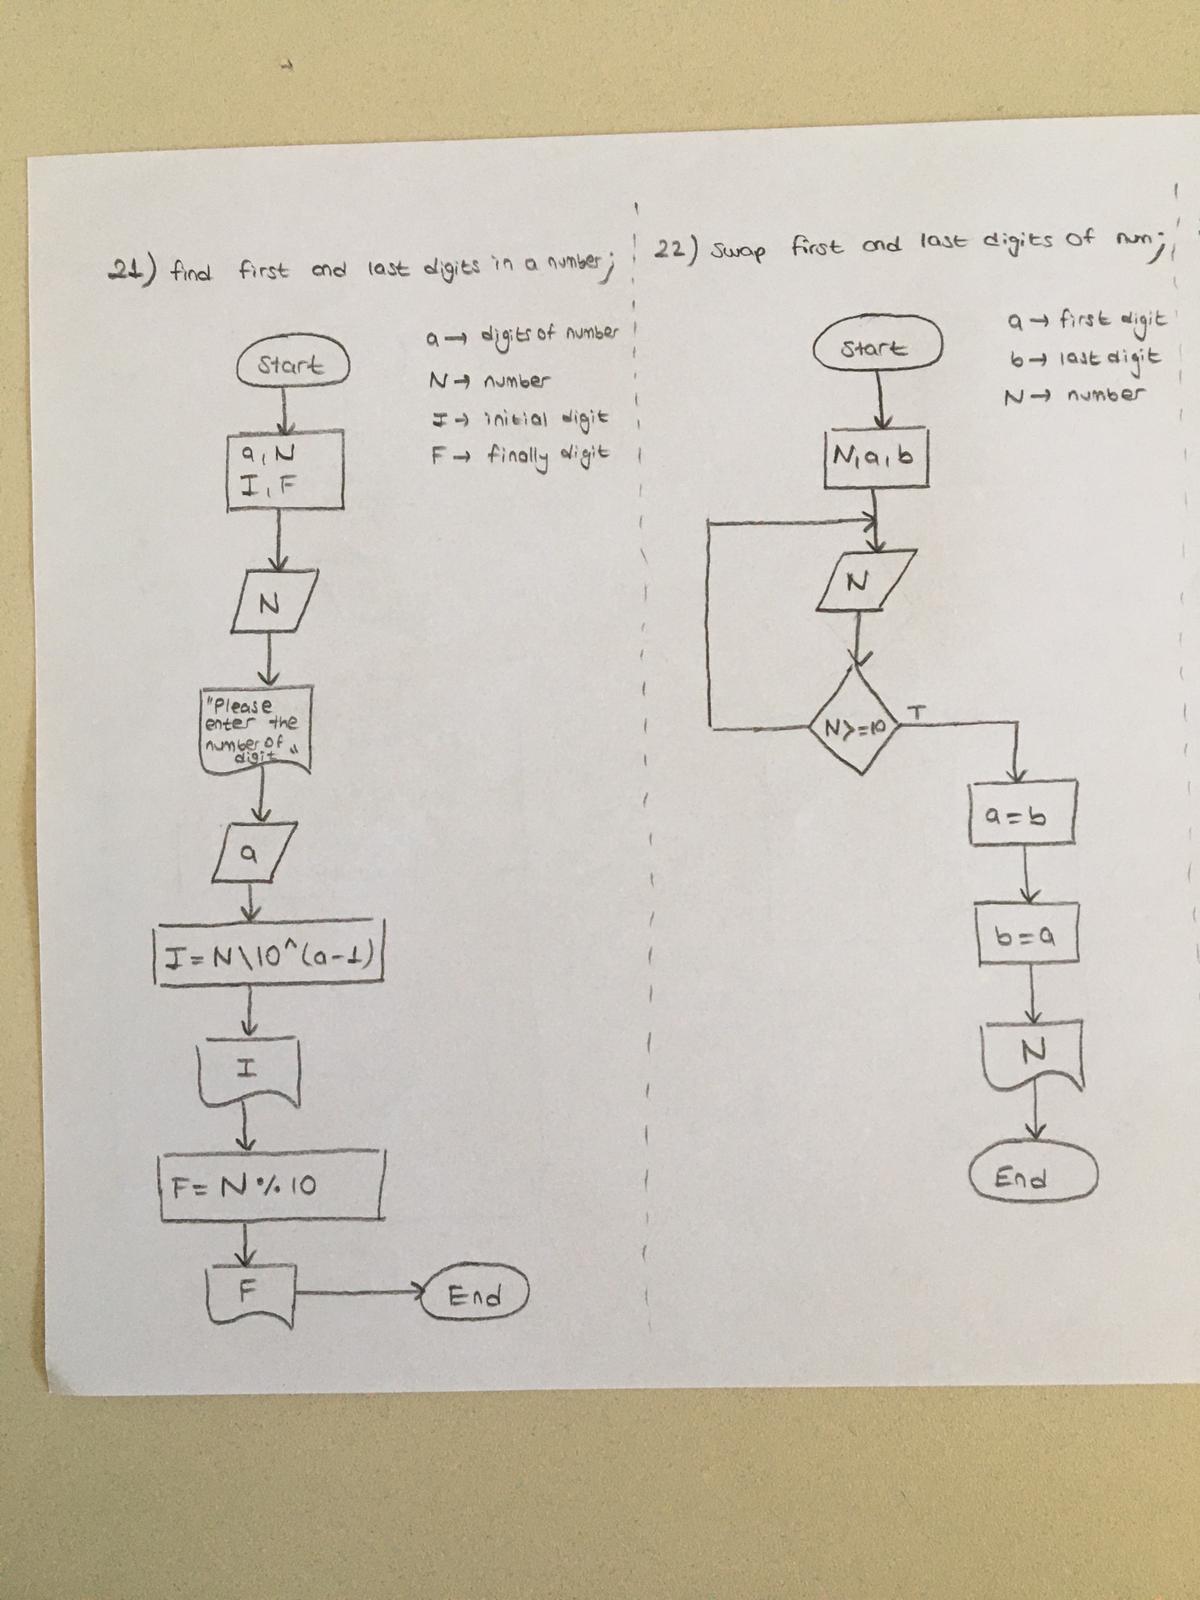 21) find first and last digits in a number;
a → digits of number
N → number
I → initial digit
F → finally digit
Start
a, N
I, F
N
"Please
enter the
number of
digit"
a
I = N\10^(a-1)
I
F = N % 10
F
End
22) Swap first and last digits of num;
a → first digit
b → last digit
N → number
Start
N, a, b
N
N>=10
T
a = b
b = a
N
End